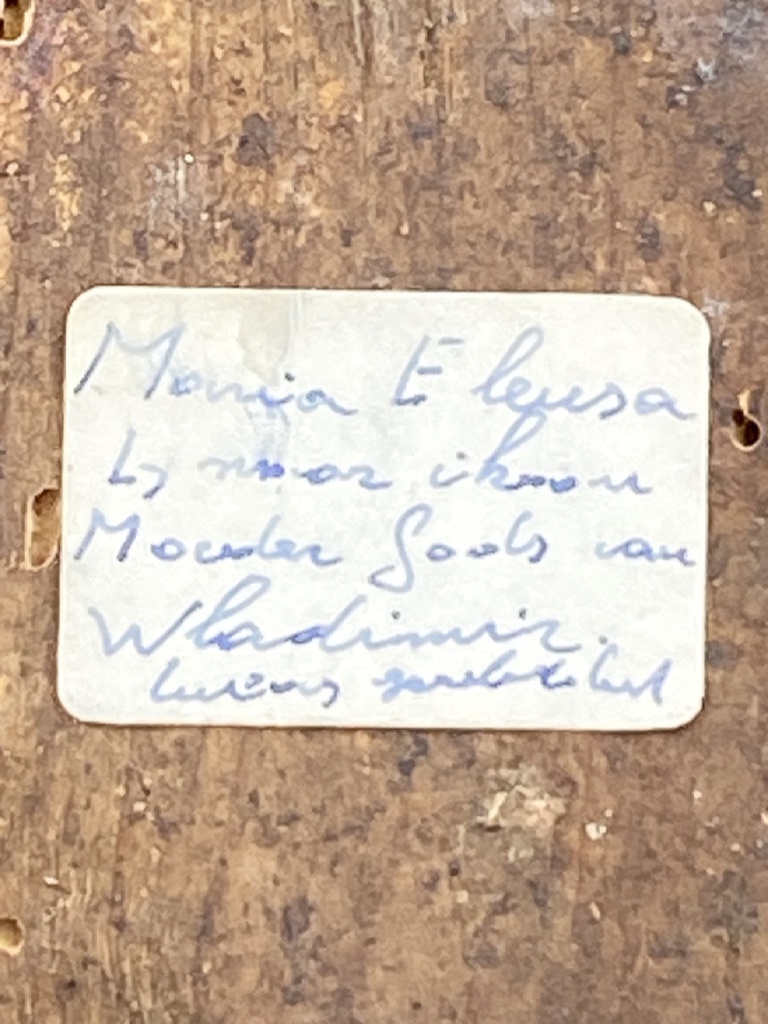 Maria Eleusa
naar ikoon
Moeder Gods van
Wladimir.
Lucas